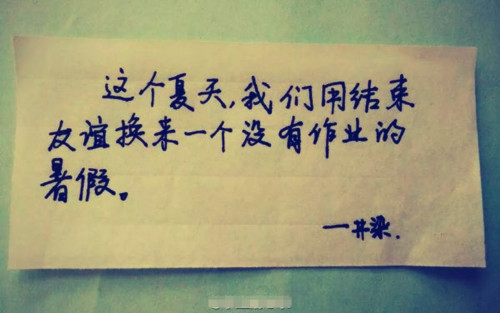 这个夏天,我们用结束
友谊换来一个没有作业的
暑假。
一井染.